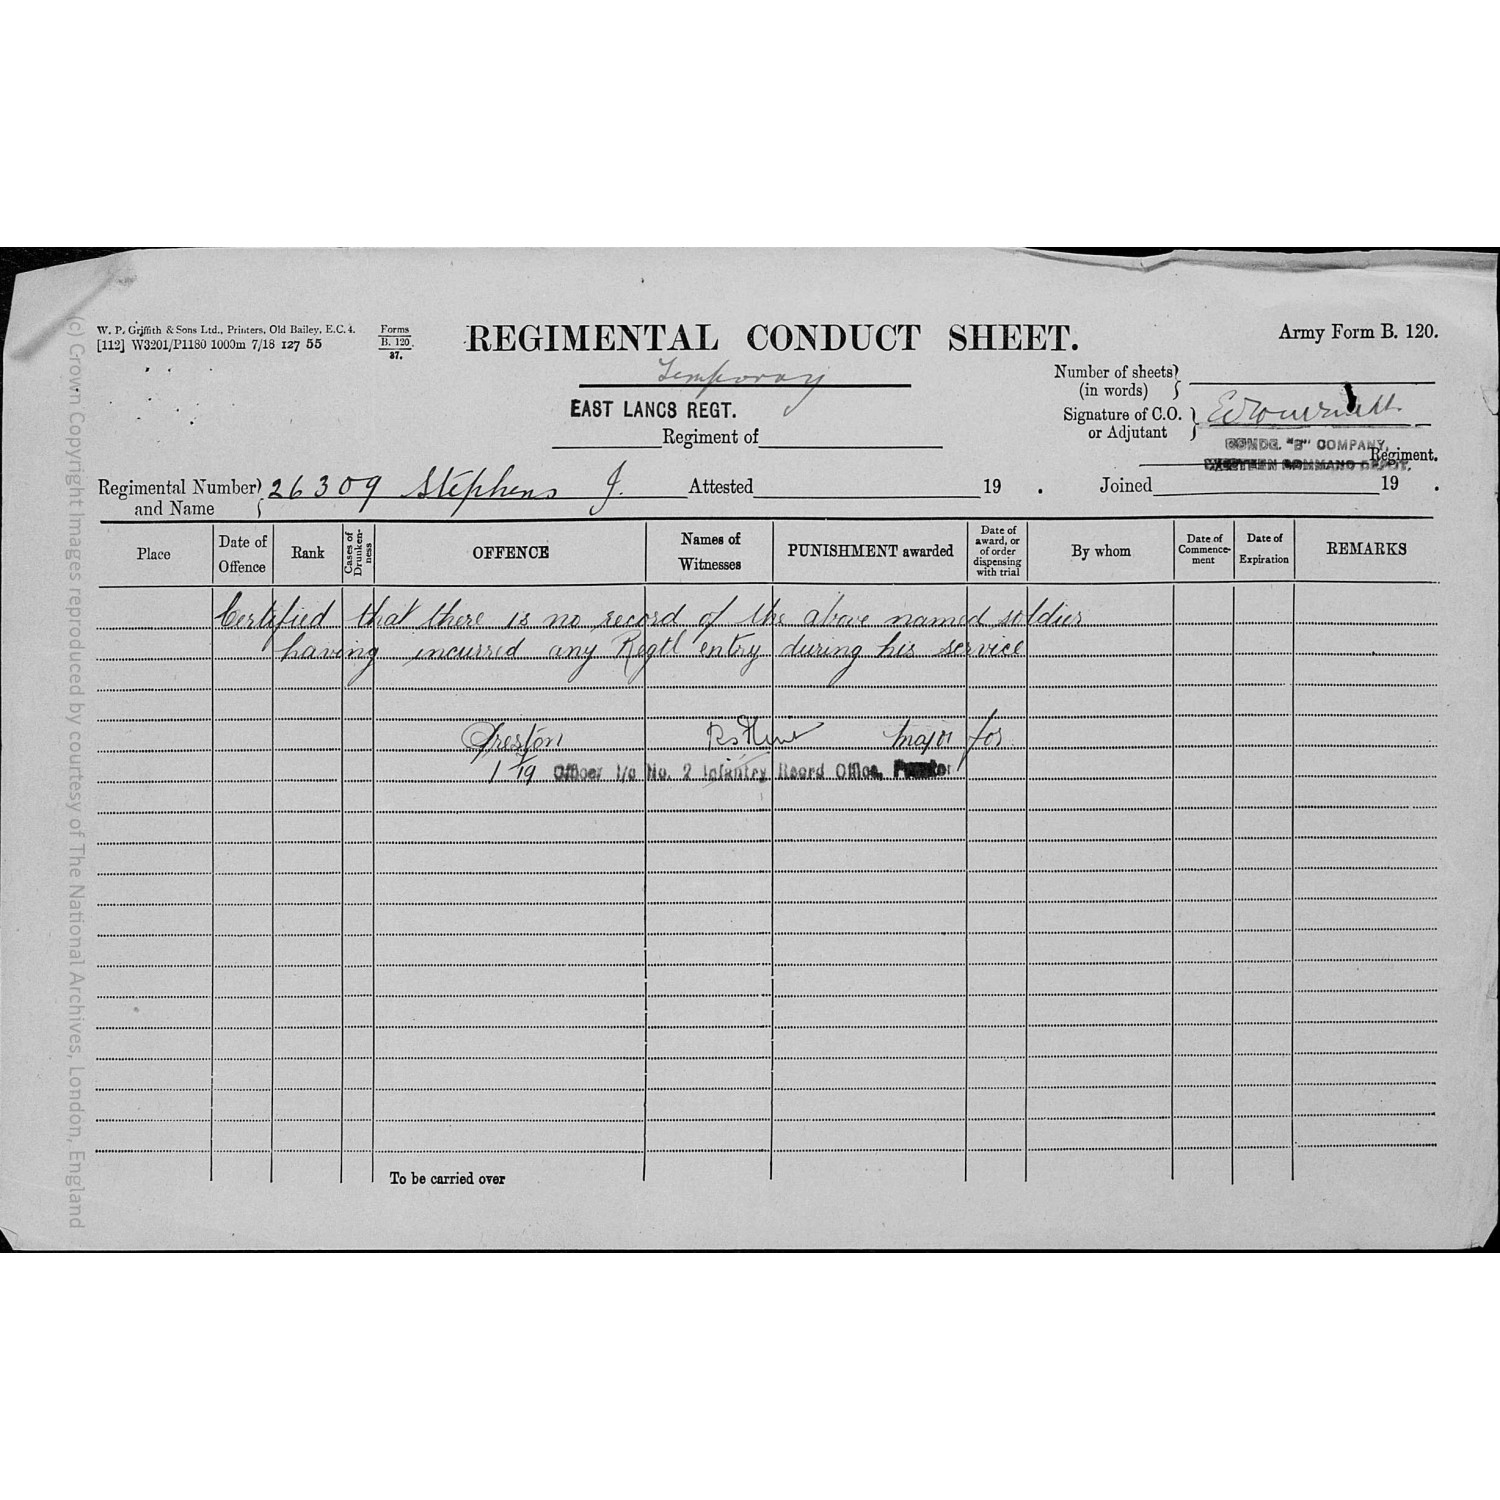 W. P. Griffith & Sons Ltd., Printers, Old Bailey, E.C.4.
[112] W3201/P1180 1000m 7/18 127 55
Forms
B. 120.
37.
REGIMENTAL CONDUCT SHEET.
Army Form B. 120.
Temporary
Number of sheets
(in words)
EAST LANCS REGT.
Signature of C.O.
or Adjutant
Regiment of
COMDG. "B" COMPANY,
Regiment.
WESTERN COMMAND DEPOT.
Regimental Number
and Name
26309 Stephens J.
Attested 19 .
Joined 19 .
Place
Date of
Offence
Rank
Cases of
Drunken-
ness
OFFENCE
Names of
Witnesses
PUNISHMENT awarded
Date of
award, or
of order
dispensing
with trial
By whom
Date of
Commence-
ment
Date of
Expiration
REMARKS
Certified that there is no record of the above named soldier
having incurred any Regtl entry during his service
Preston Major for
Officer i/c No. 2 Infantry Record Office, Preston
To be carried over
(c) Crown Copyright Images reproduced by courtesy of The National Archives, London, England